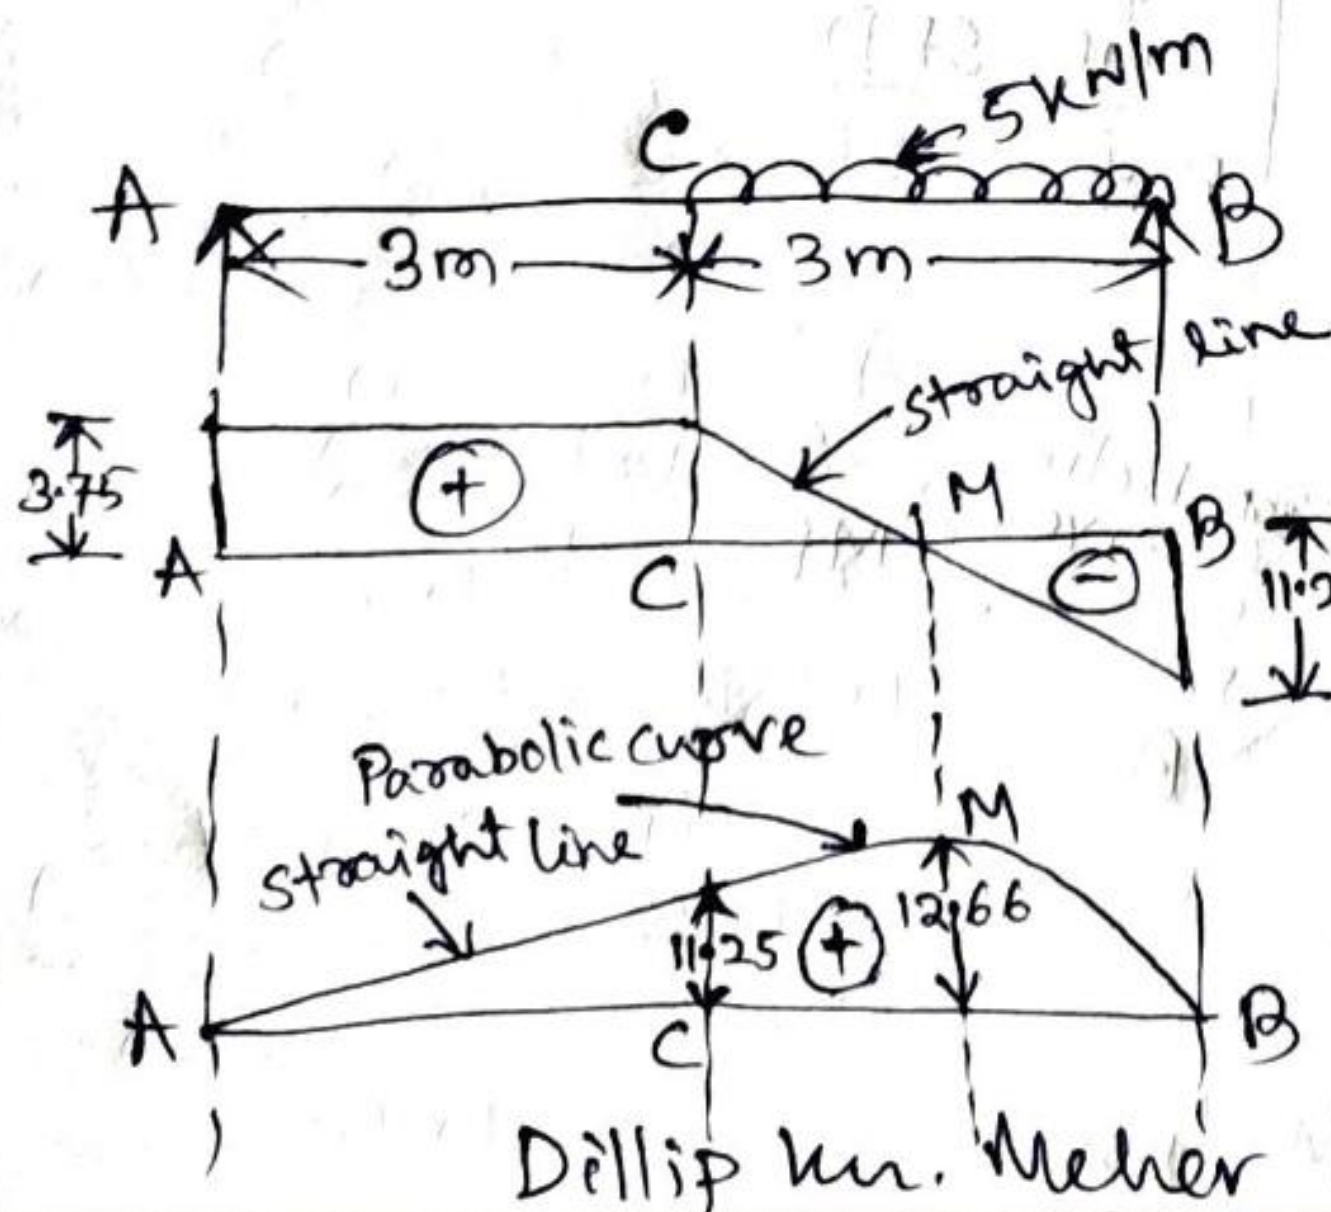 5kN/m
C
A
B
3m
3m
straight line
3.75
+
M
A
C
B
−
11.2
Parabolic curve
M
straight line
11.25
+
12.66
A
C
B
Dillip Kr. Meher